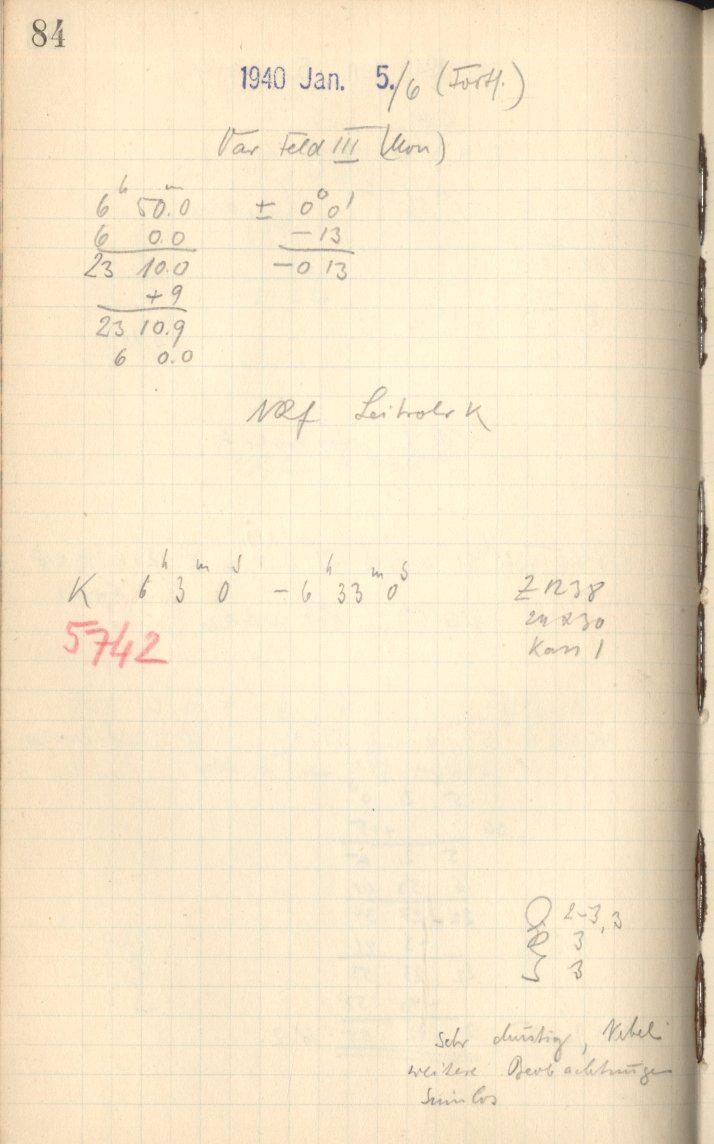 84
1940 Jan. 5./6 (Fortf.)
Var Feld III (Mon)
6h 50.0m ± 0°0'
6 0.0 -13
23 10.0 -0 13
+9
23 10.9
6 0.0
Leitrohr K
K 6h 3m 0s - 6h 33m 0s Z 1238
5742 24x30
Kass 1
2-3,3
3
3
sehr dunstig, Nebel
weitere Beobachtungen
sinnlos